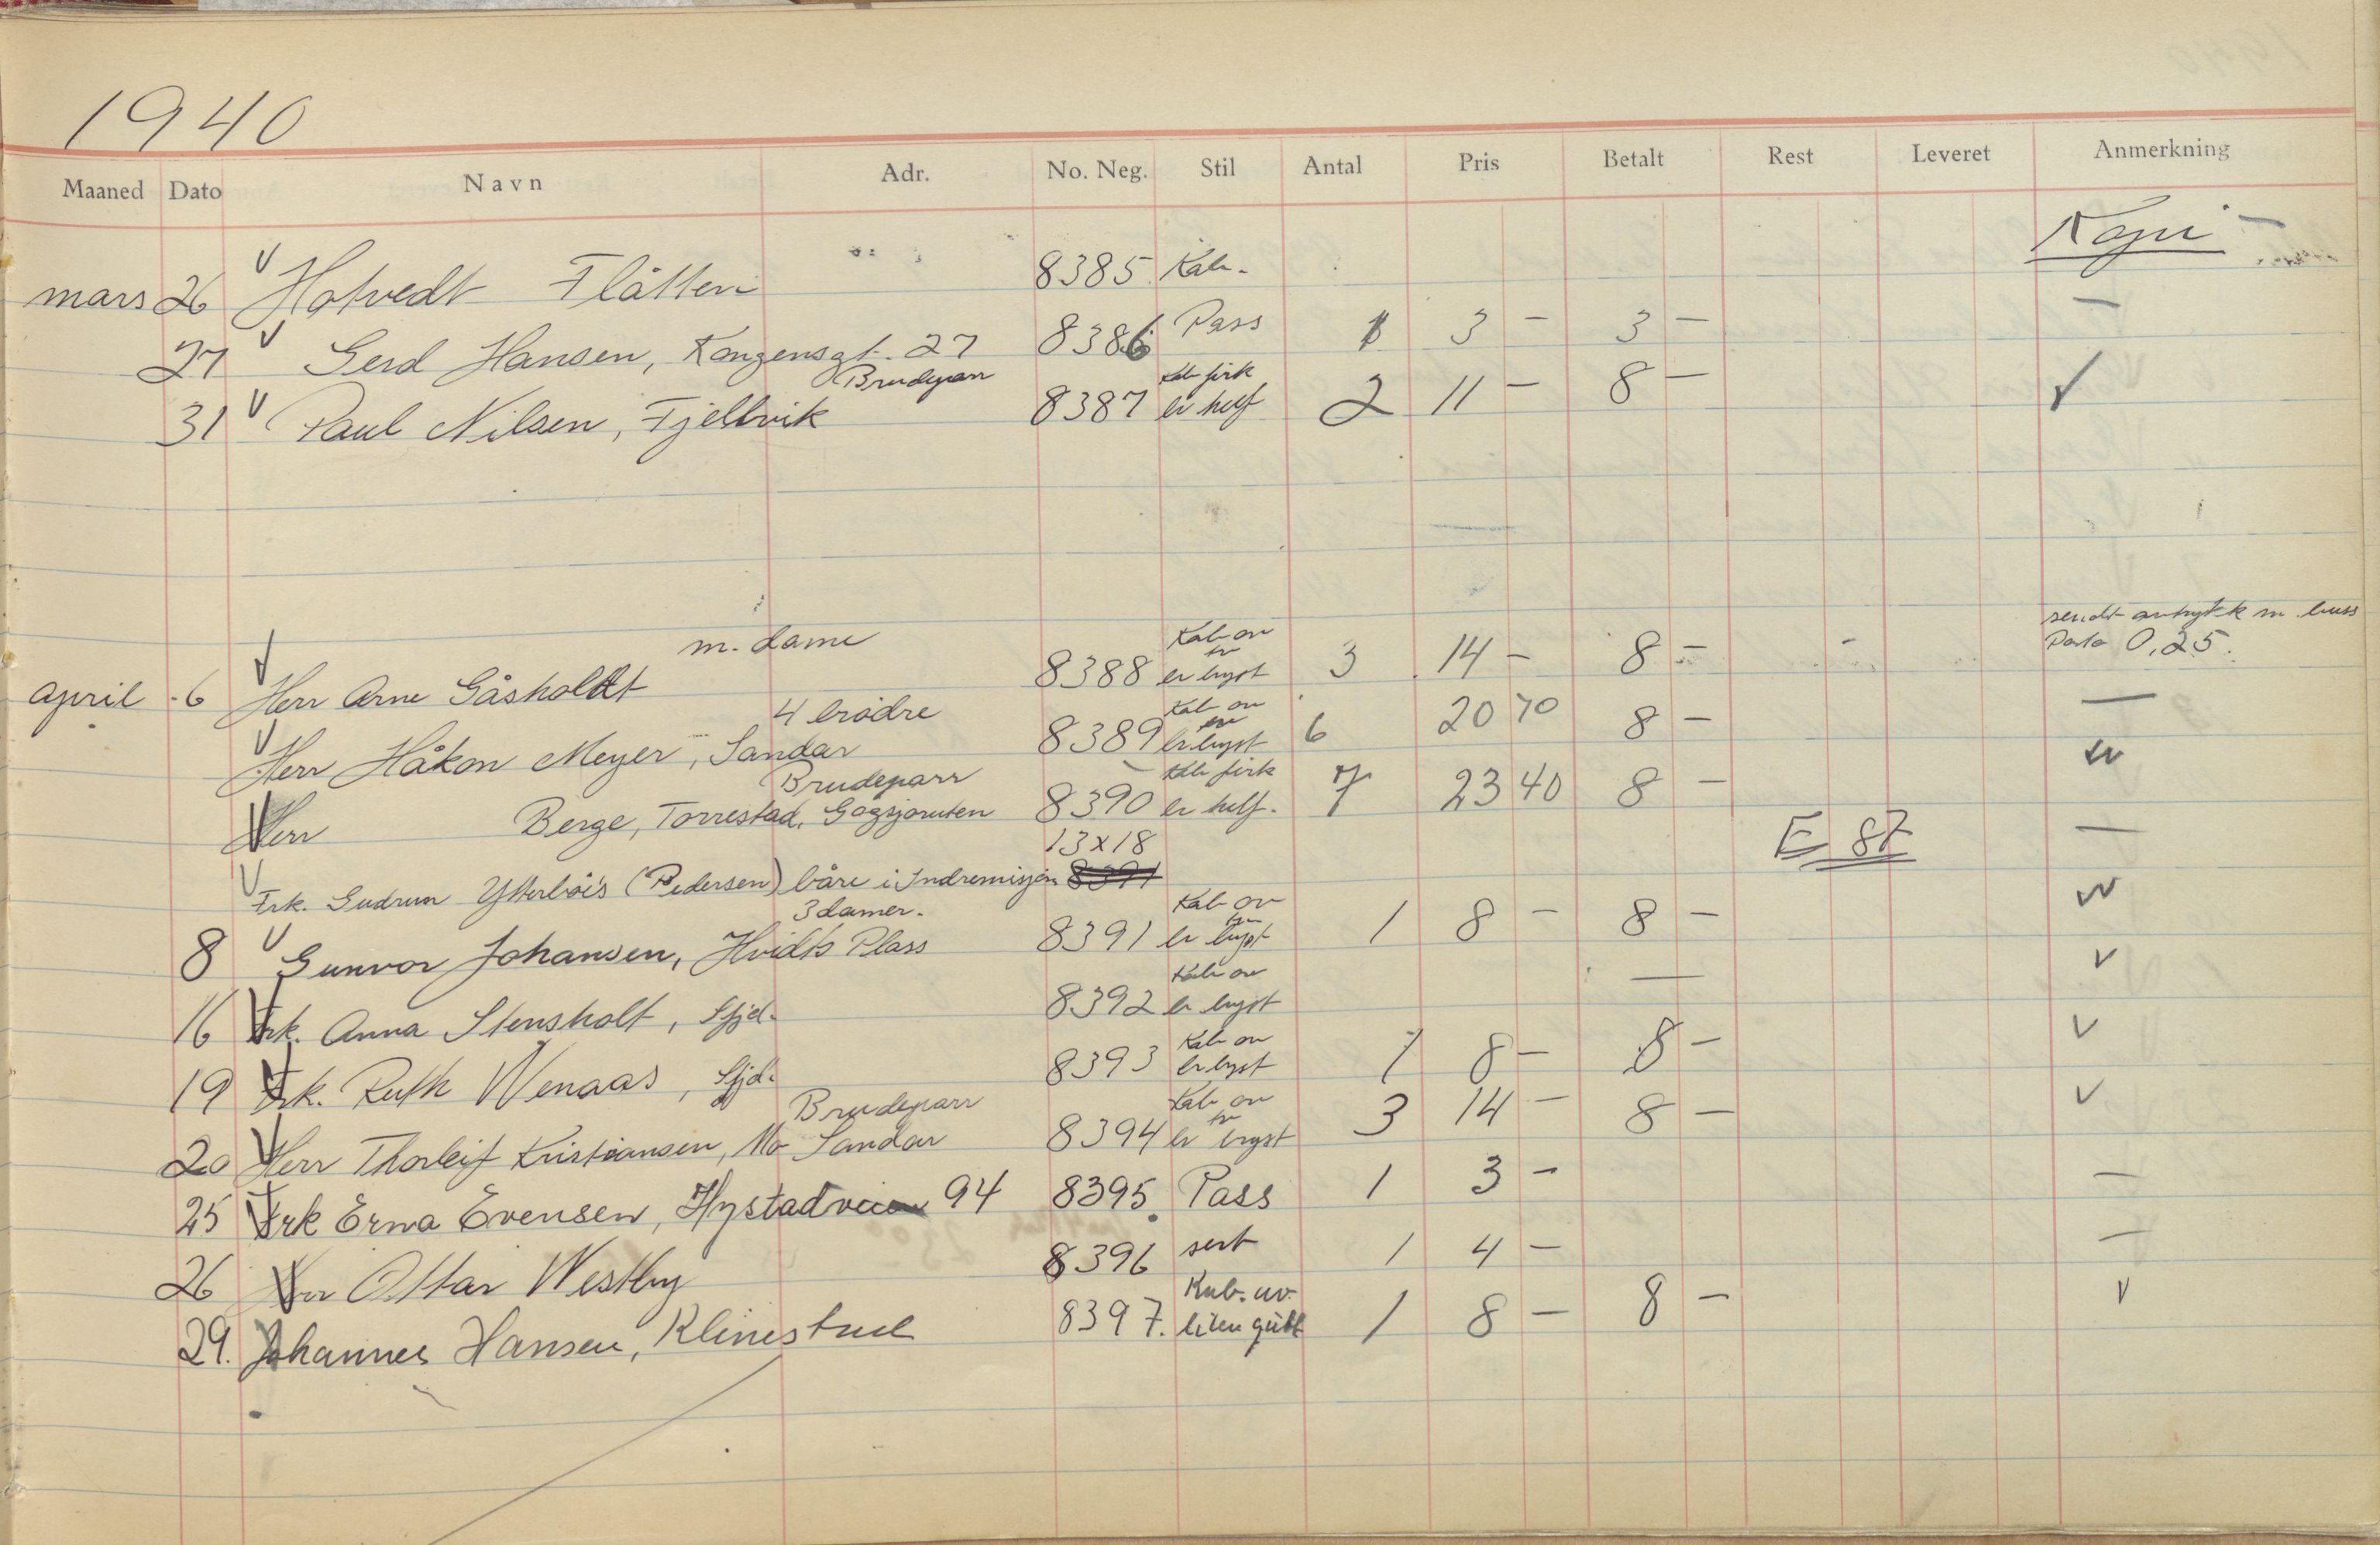 1940
Maaned Dato Navn Adr. No. Neg. Stil Antal Pris Betalt Rest Leveret Anmerkning
Kopi
mars 26 V Hotvedt Flåtten 8385 Kab. —
27 V Gerd Hansen, Kongensgt. 27 8386 Pass 1 3 — 3 — —
Brudepar Kab firk
31 V Paul Nilsen, Fjellvik 8387 er helf 2 11 — 8 — V
m. dame Kab ov sendt m. buss
april 6 V Herr Arne Gåsholdt 8388 er bryst 3 14 — 8 — - Porto 0,25.
4 brødre Kab ov
V Herr Håkon Meyer, Sandar 8389 er bryst 6 20 70 8 — —
Brudeparr Kab firk
V Herr Berge, Torrestad, Gogsjøruten 8390 er helf. 7 23 40 8 —
13x18 E 87
V Frk. Gudrun (Pedersen) båre i Indremisjon 8391 —
3 damer. Kab ov
8 V Gunvor Johansen, Hvidts Plass 8391 er bryst 1 8 — 8 —
Kab ov
16 V Frk. Anna Stensholt, Sfjd. 8392 er bryst — V
Kab ov
19 V Frk. Ruth Wenaas, Sfjd. 8393 er bryst 1 8 — 8 — V
Brudeparr Kab ov
20 V Herr Thorleif Kristiansen, Mo Sandar 8394 er bryst 3 14 — 8 — V
25 V Frk Erna Evensen, Hystadveien 94 8395. Pass 1 3 — —
26 V Herr Ottar Westby 8396 sert 1 4 — —
Kab. uv.
29. V Johannes Hansen, Klinestad 8397. liten gutt 1 8 — 8 — V